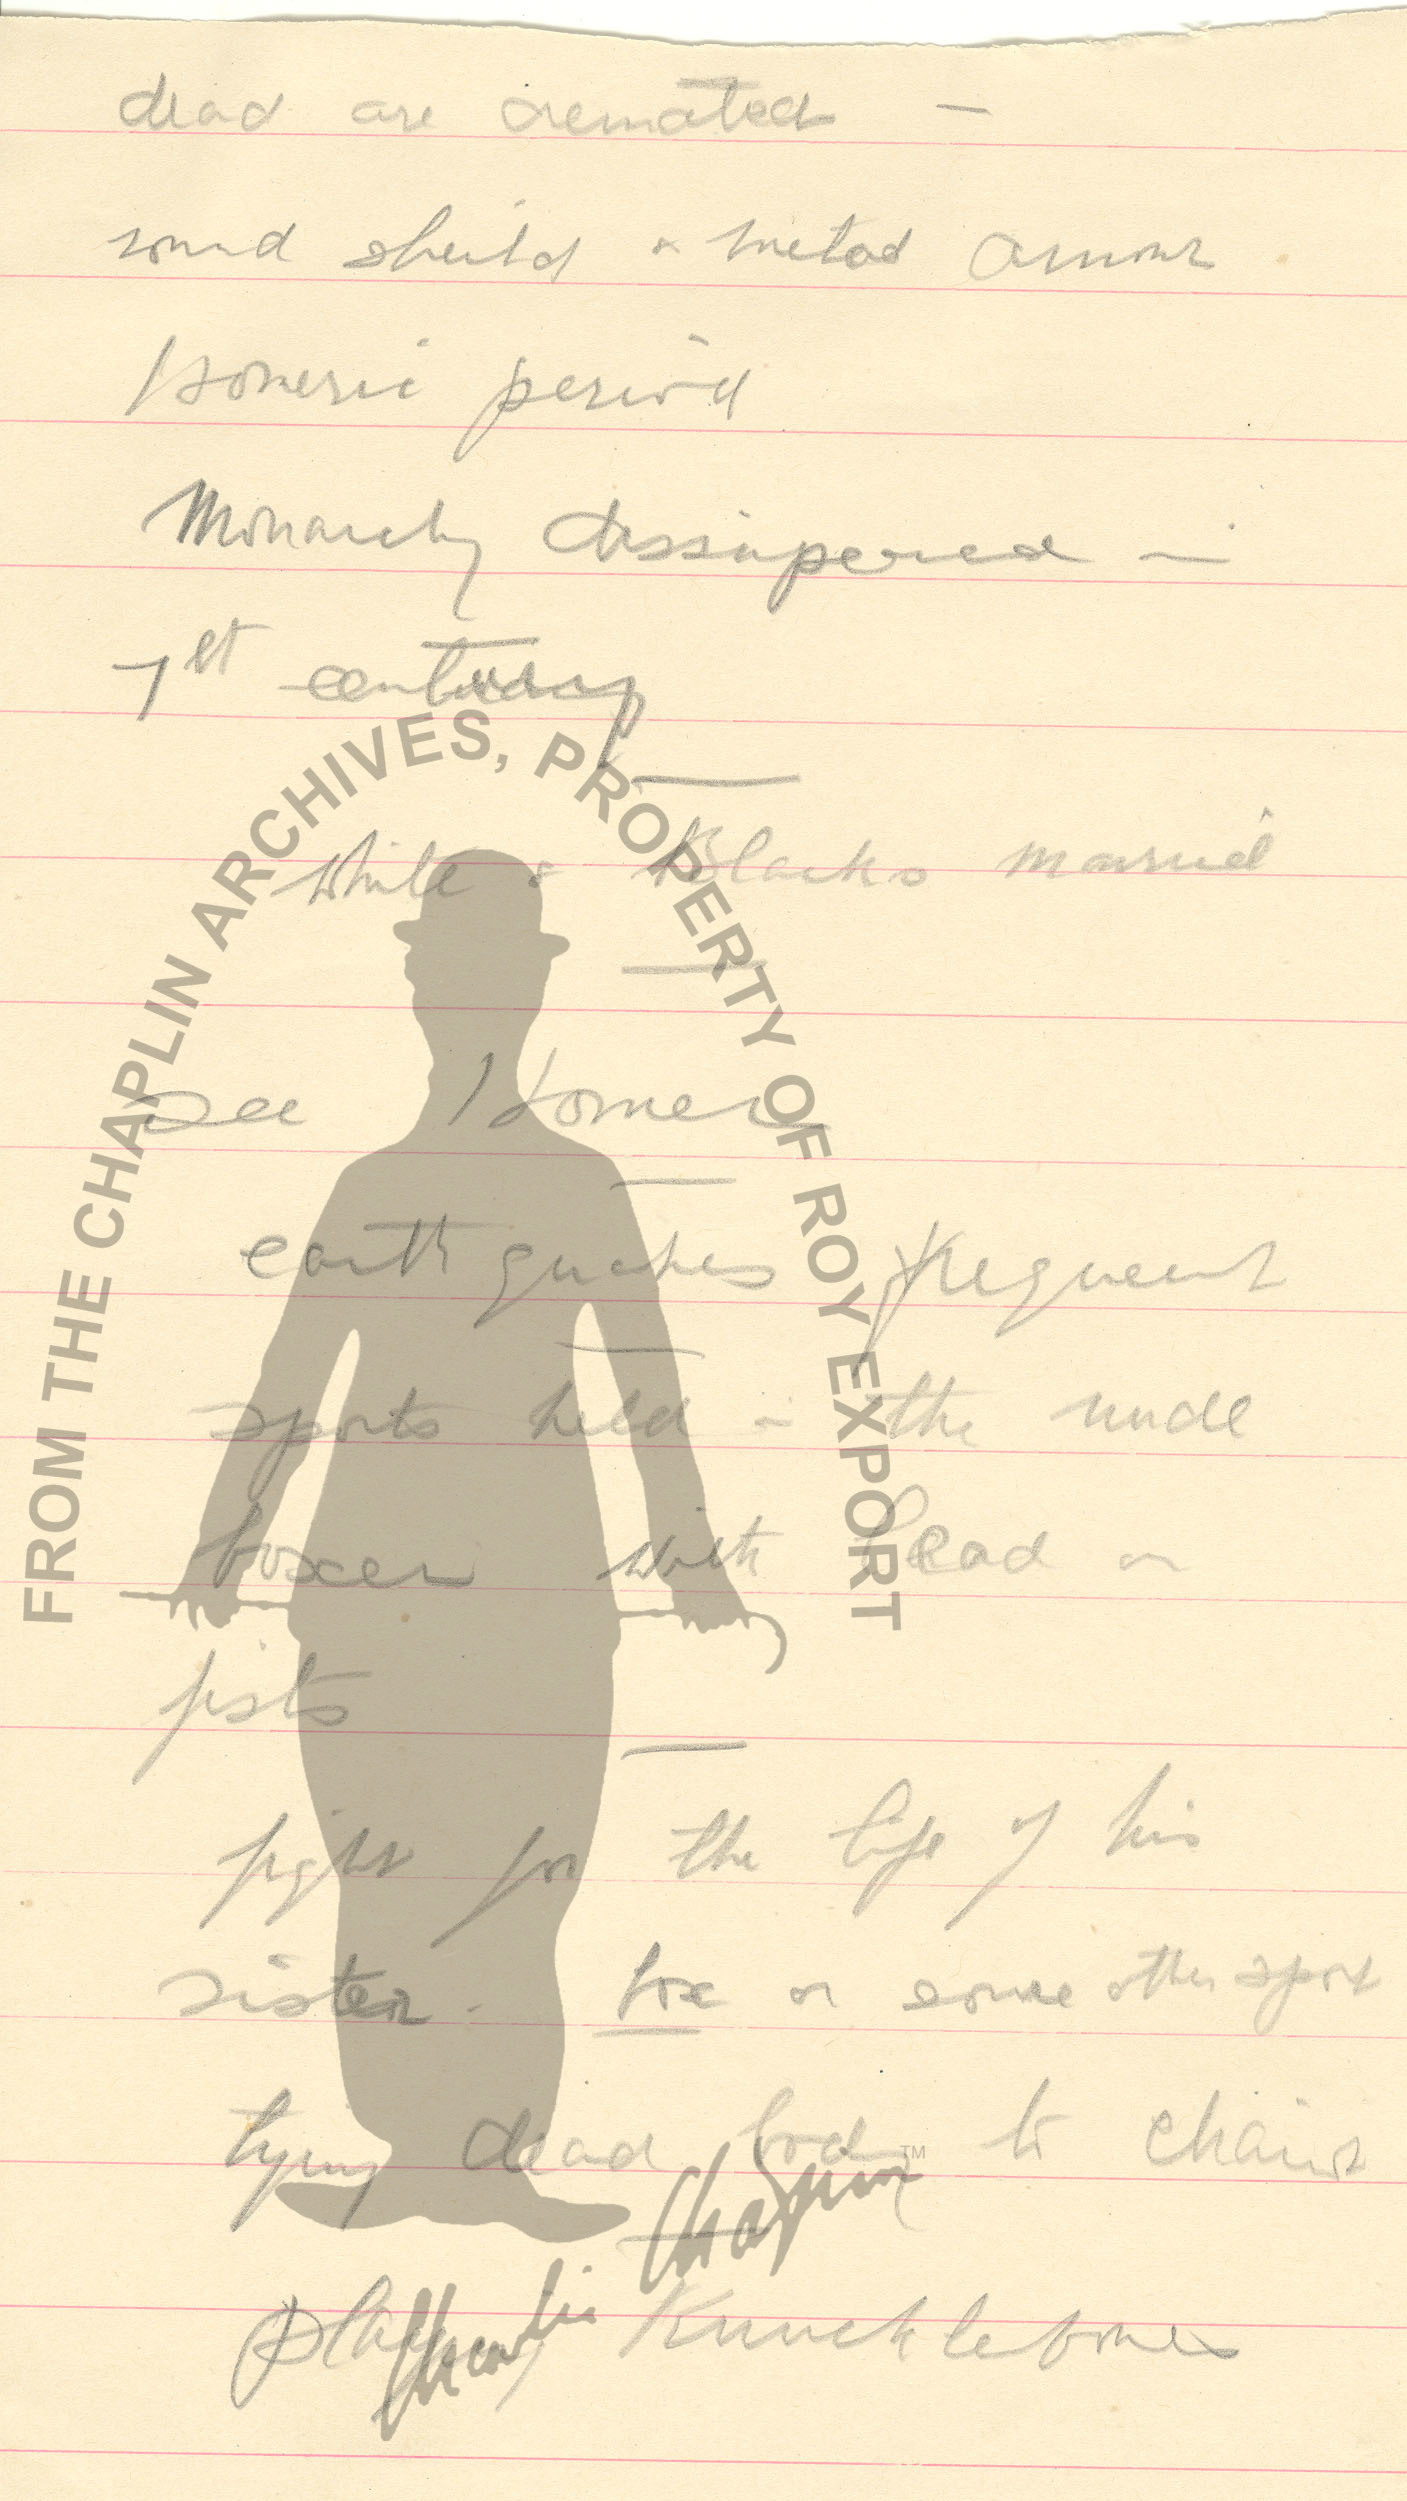 dead are cremated —
round sheild & metad armour
Homeric period
Monarchy dissapered in
1st century
—
White & Blacks married
—
See Homer
—
earth quakes frequent
—
sports held in the nude
boxer with lead on
fists
—
fight for the life of his
sister. box or some other sport
tying dead body to chair
—
playing Knucklebones
FROM THE CHAPLIN ARCHIVES, PROPERTY OF ROY EXPORT
Charlie Chaplin
TM